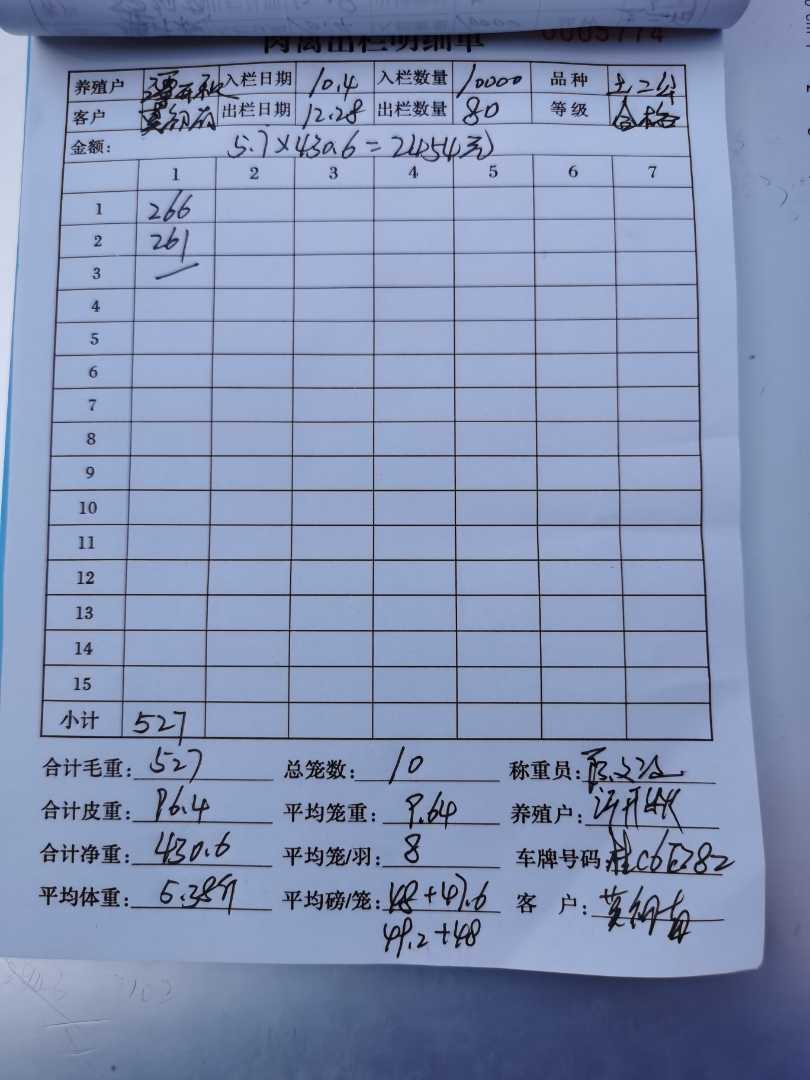 肉禽出栏明细单 0005774
养殖户 入栏日期 10.4 入栏数量 10000 品种 土二
客户 黄 出栏日期 12.28 出栏数量 80 等级 合格
金额: 5.7×430.6=2454元
1 2 3 4 5 6 7
1 266
2 261
3 —
4
5
6
7
8
9
10
11
12
13
14
15
小计 527
合计毛重: 527 总笼数: 10 称重员:
合计皮重: 96.4 平均笼重: 9.64 养殖户:
合计净重: 430.6 平均笼/羽: 8 车牌号码 桂C6E382
平均体重: 5.38斤 平均磅/笼: 48+47.6 客 户: 黄
49.2+48